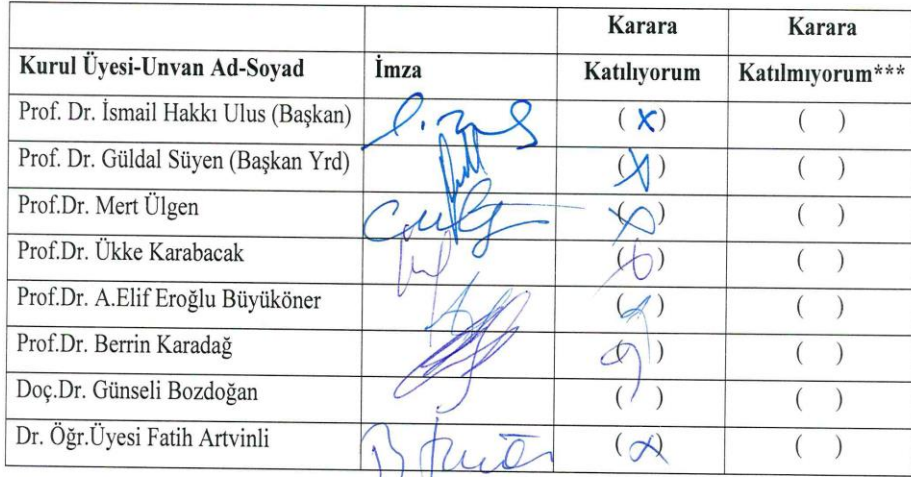 Karara Karara
Kurul Üyesi-Unvan Ad-Soyad İmza Katılıyorum Katılmıyorum***
Prof. Dr. İsmail Hakkı Ulus (Başkan) (X) ( )
Prof. Dr. Güldal Süyen (Başkan Yrd) (X) ( )
Prof.Dr. Mert Ülgen (X) ( )
Prof.Dr. Ükke Karabacak (X) ( )
Prof.Dr. A.Elif Eroğlu Büyüköner ( ) ( )
Prof.Dr. Berrin Karadağ ( ) ( )
Doç.Dr. Günseli Bozdoğan ( ) ( )
Dr. Öğr.Üyesi Fatih Artvinli (X) ( )